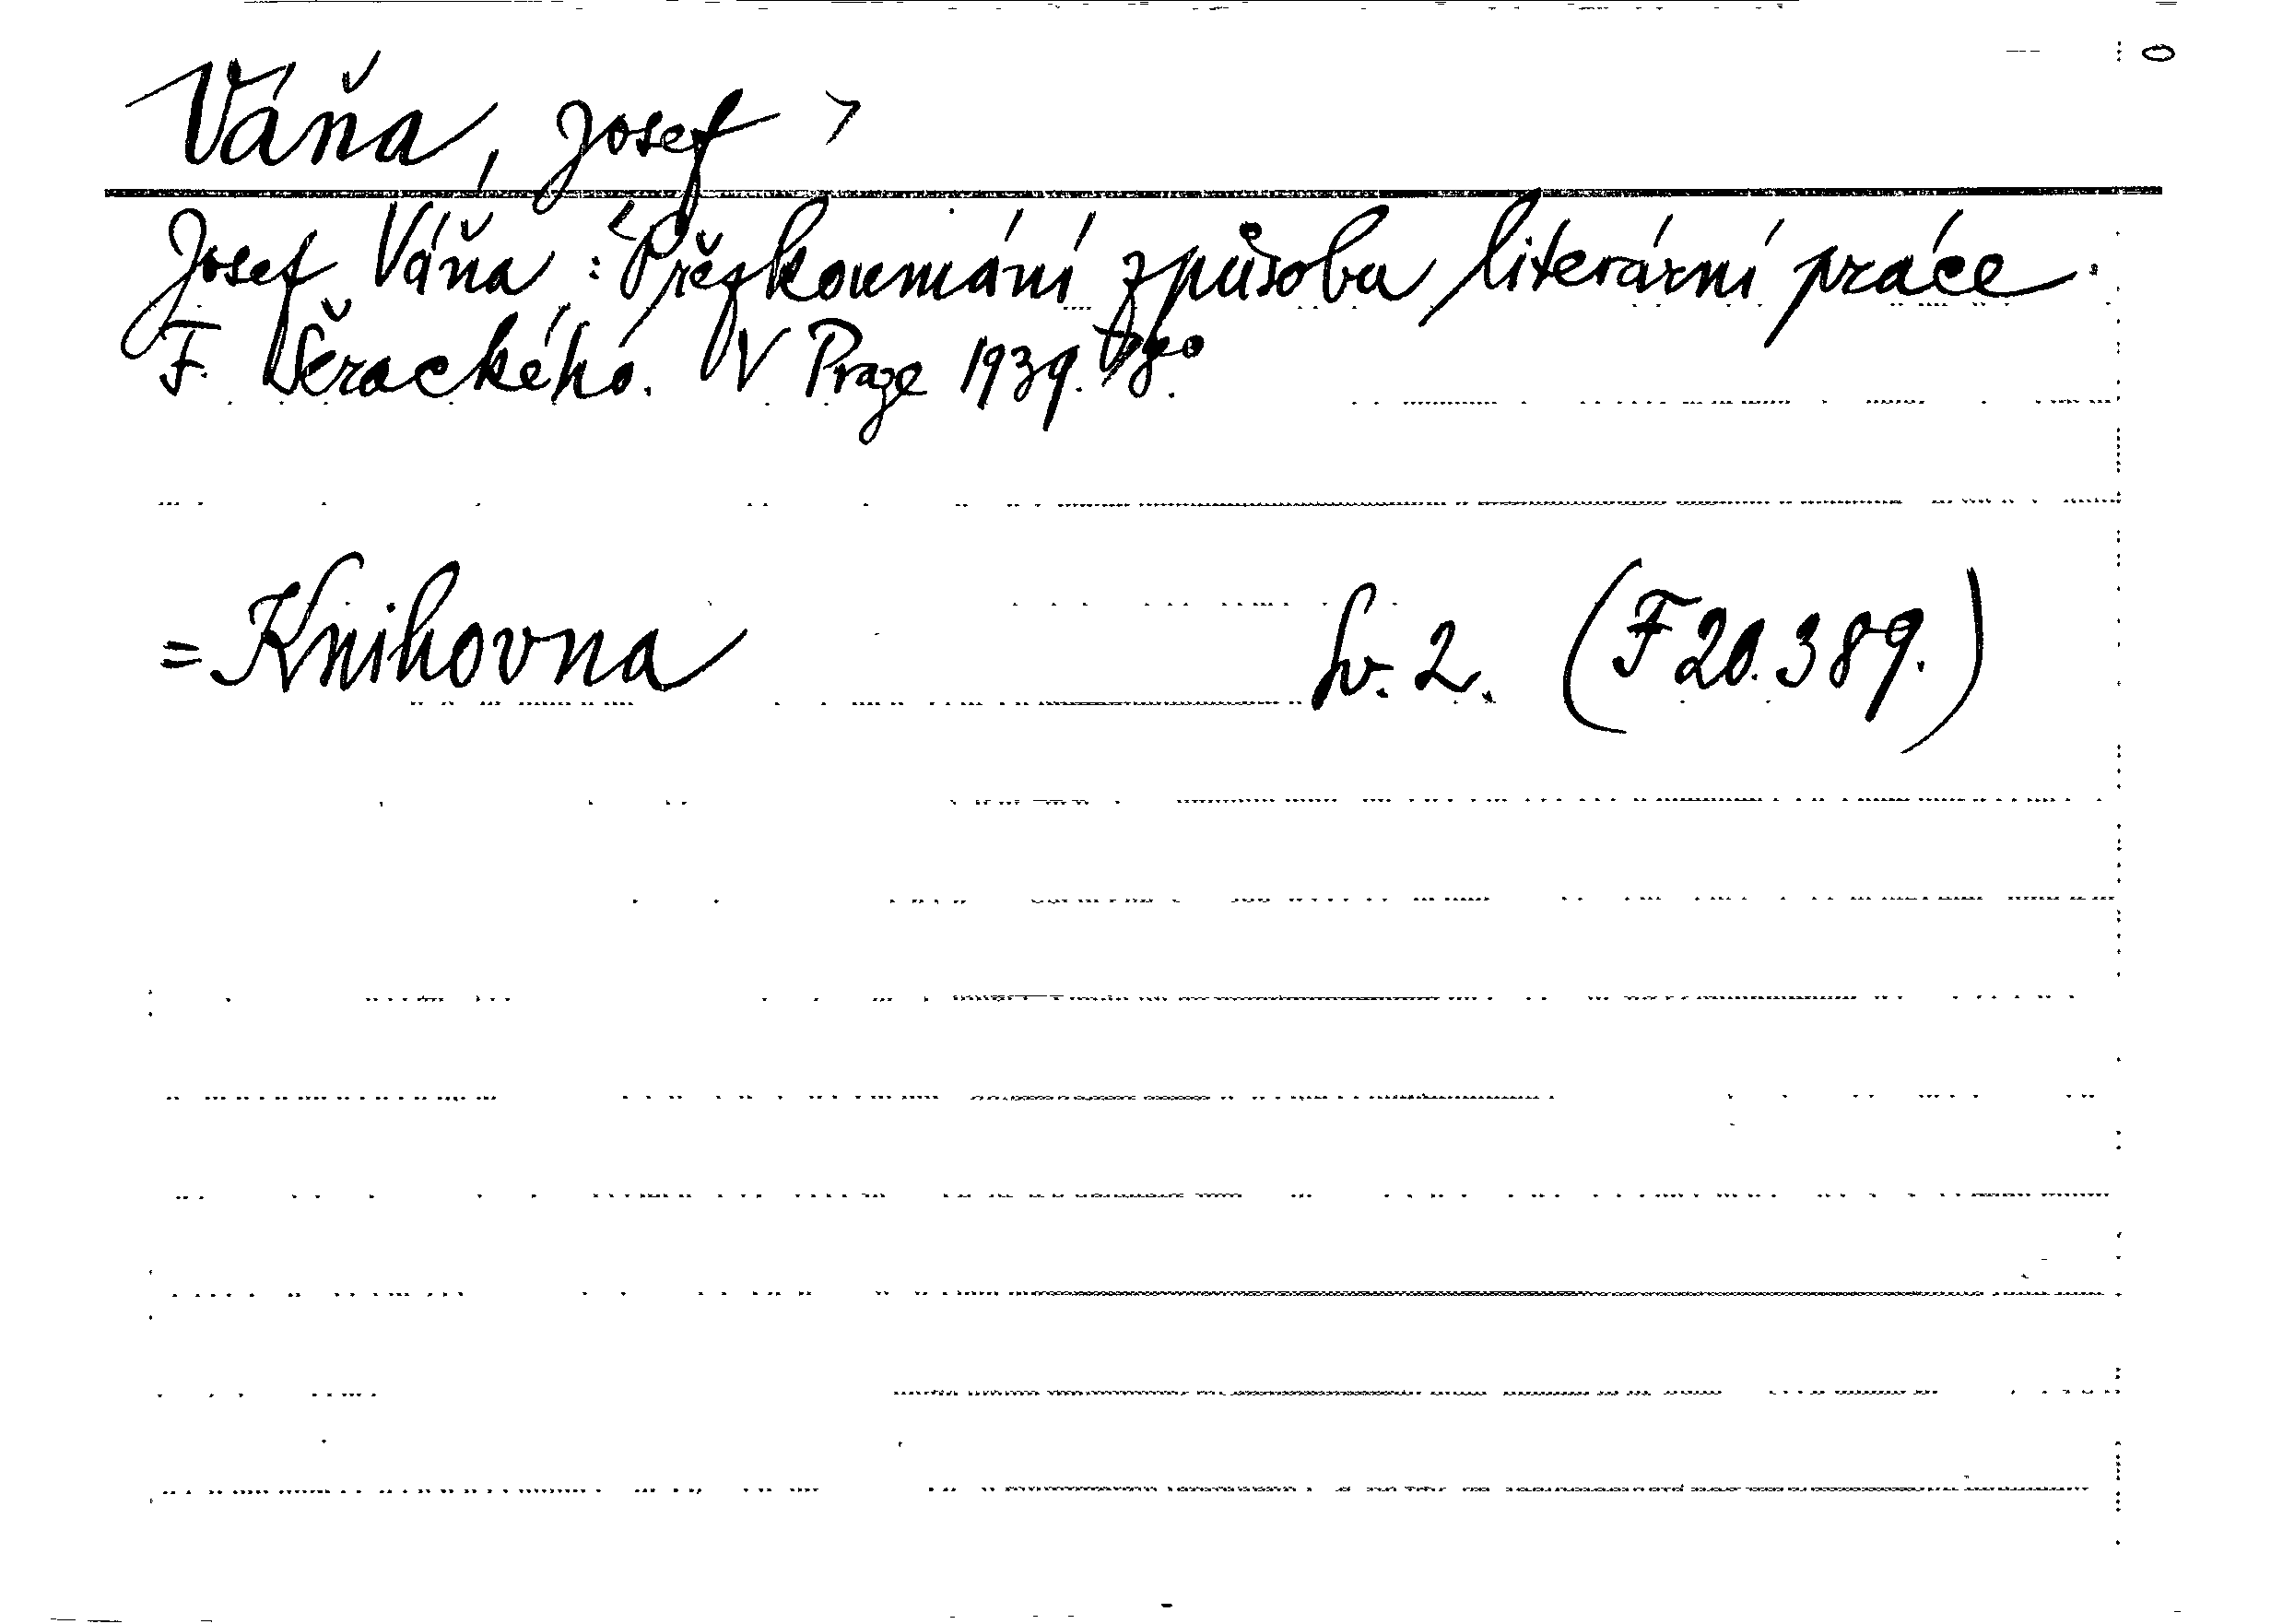 Váňa, Josef
Josef Váňa: Přezkoumání způsobu literární práce
F. Šeráckého. V Praze 1939. 8°.
= Knihovna Sv. 2. (F 20.389.)